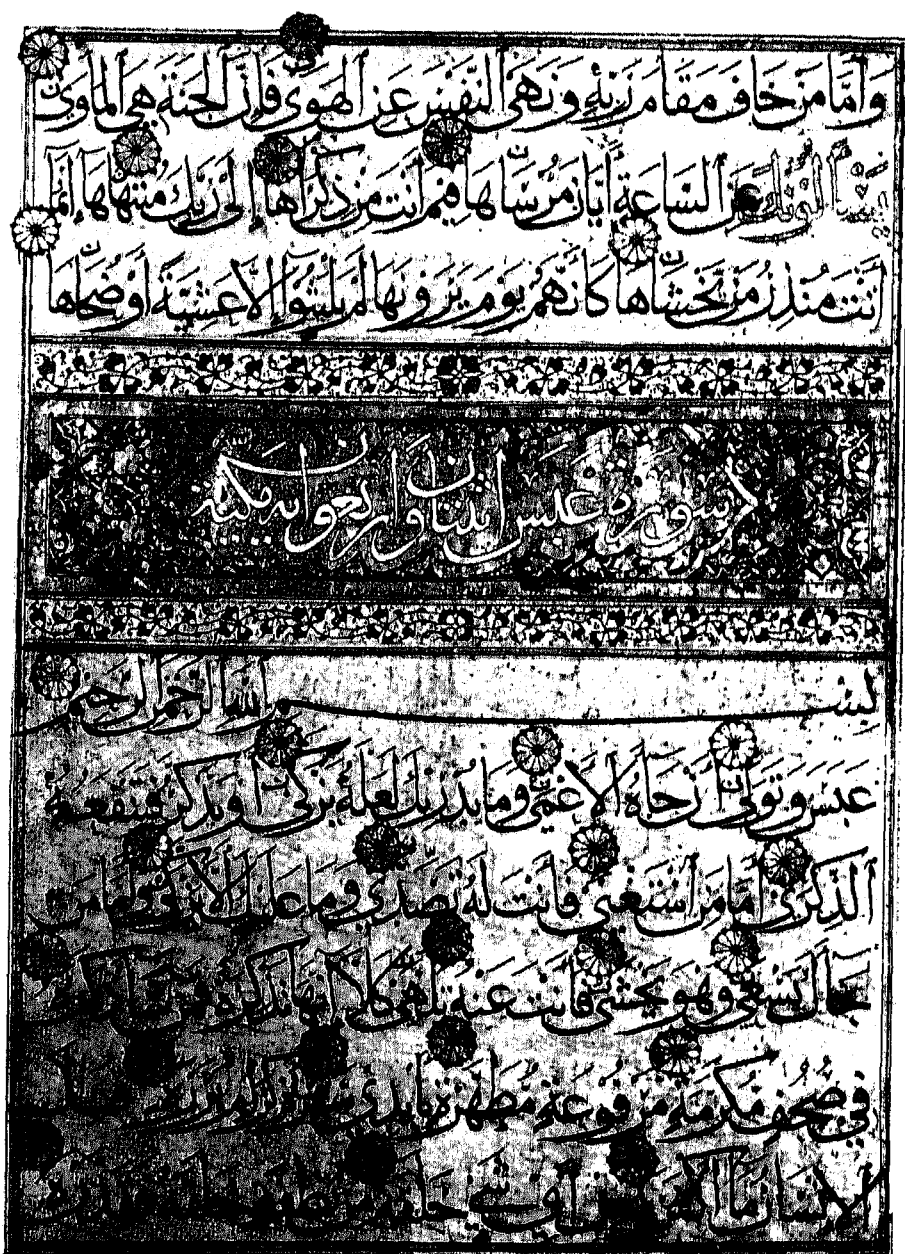 وَأَمَّا مَنْ خَافَ مَقَامَ رَبِّهِ وَنَهَى النَّفْسَ عَنِ الْهَوَى فَإِنَّ الْجَنَّةَ هِيَ الْمَأْوَى
يَسْأَلُونَكَ عَنِ السَّاعَةِ أَيَّانَ مُرْسَاهَا فِيمَ أَنْتَ مِنْ ذِكْرَاهَا إِلَى رَبِّكَ مُنْتَهَاهَا إِنَّمَا
أَنْتَ مُنْذِرُ مَنْ يَخْشَاهَا كَأَنَّهُمْ يَوْمَ يَرَوْنَهَا لَمْ يَلْبَثُوا إِلَّا عَشِيَّةً أَوْ ضُحَاهَا
سورة عبس اثنتان واربعون اية مكية
بِسْمِ اللَّهِ الرَّحْمَنِ الرَّحِيمِ
عَبَسَ وَتَوَلَّى أَنْ جَاءَهُ الْأَعْمَى وَمَا يُدْرِيكَ لَعَلَّهُ يَزَّكَّى أَوْ يَذَّكَّرُ فَتَنْفَعَهُ
الذِّكْرَى أَمَّا مَنِ اسْتَغْنَى فَأَنْتَ لَهُ تَصَدَّى وَمَا عَلَيْكَ أَلَّا يَزَّكَّى وَأَمَّا مَنْ
جَاءَكَ يَسْعَى وَهُوَ يَخْشَى فَأَنْتَ عَنْهُ تَلَهَّى كَلَّا إِنَّهَا تَذْكِرَةٌ فَمَنْ شَاءَ ذَكَرَهُ
فِي صُحُفٍ مُكَرَّمَةٍ مَرْفُوعَةٍ مُطَهَّرَةٍ بِأَيْدِي سَفَرَةٍ كِرَامٍ بَرَرَةٍ قُتِلَ
الْإِنْسَانُ مَا أَكْفَرَهُ مِنْ أَيِّ شَيْءٍ خَلَقَهُ مِنْ نُطْفَةٍ خَلَقَهُ فَقَدَّرَهُ